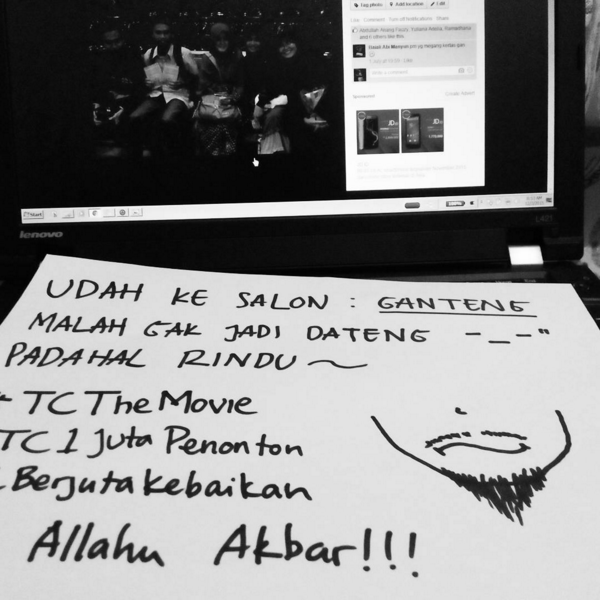 Tag photo Add location Edit
Like Comment Turn off Notifications Share
Create Advert
JD
JD
Start
lenovo
L421
UDAH KE SALON : GANTENG
MALAH GAK JADI DATENG -_-"
PADAHAL RINDU ~
TC The Movie
TC 1 Juta Penonton
Berjuta kebaikan
Allahu Akbar!!!